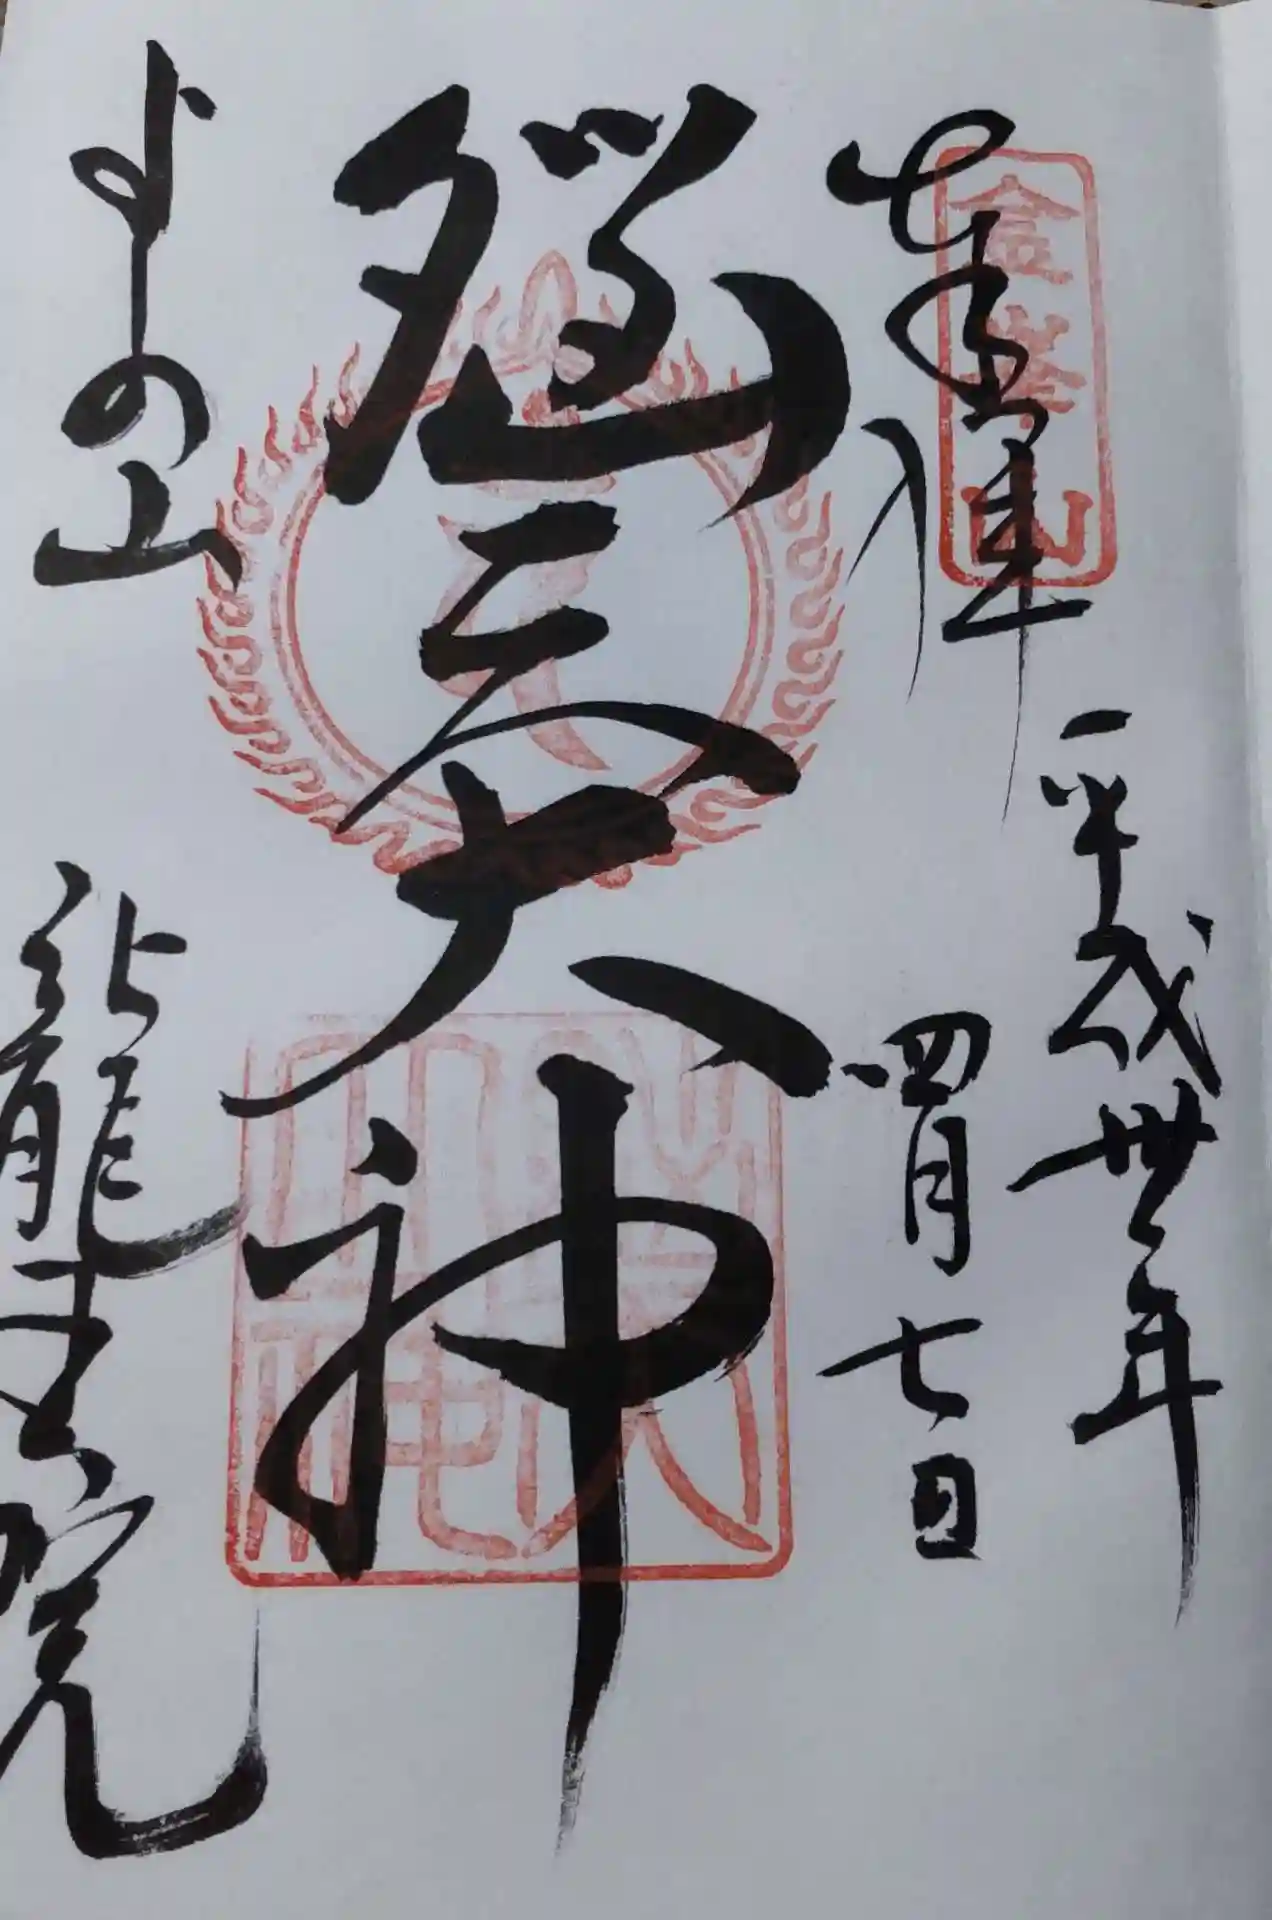 奉拝
金峯山
平成卅年
四月七日
脳天大神
よしの山
龍王院